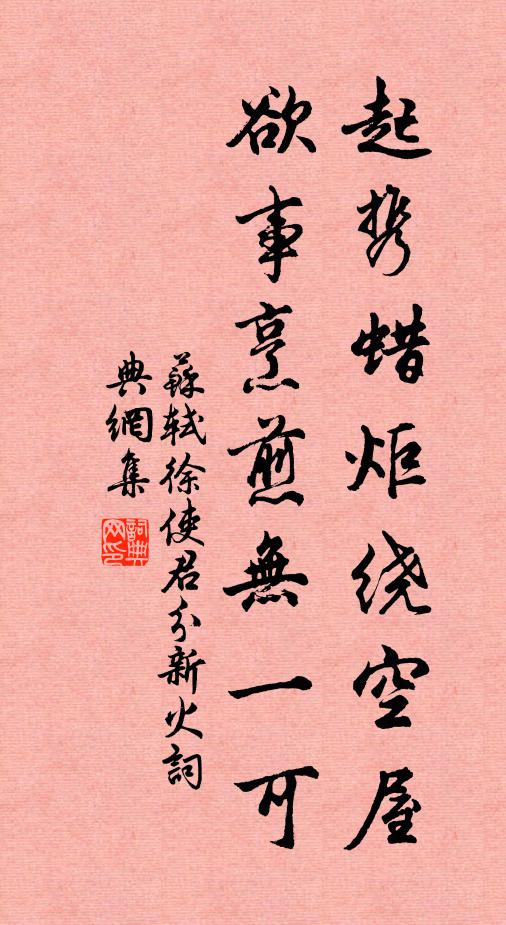 起携蜡炬绕空屋
欲事烹煎無一可
蘇軾徐使君分新火詞
典網集
詞典网印